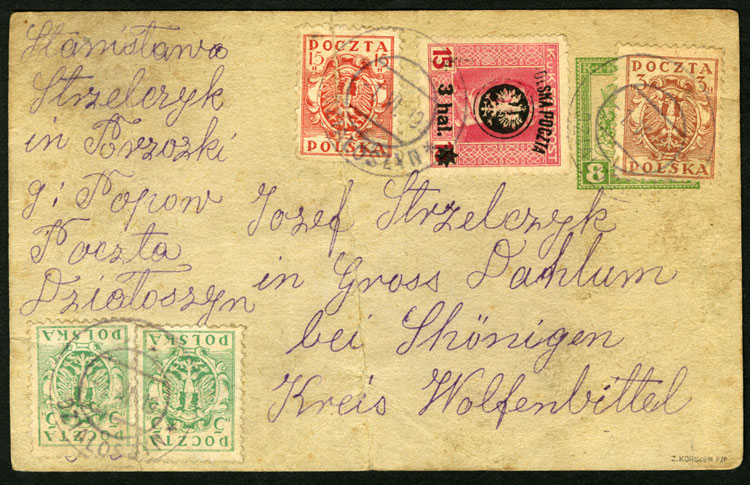 Stanisława
Strzelczyk
in Brzozki
g: Popow
Poczta
Działoszyn
POCZTA
15 15
POLSKA
15
3 hal.
POLSKA POCZTA
8
POCZTA
3 3
POLSKA
Jozef Strzelczyk
in Gross Dahlum
bei Shönigen
Kreis Wolfenbittel
POLSKA
5 5
POCZTA
POLSKA
5 5
POCZTA